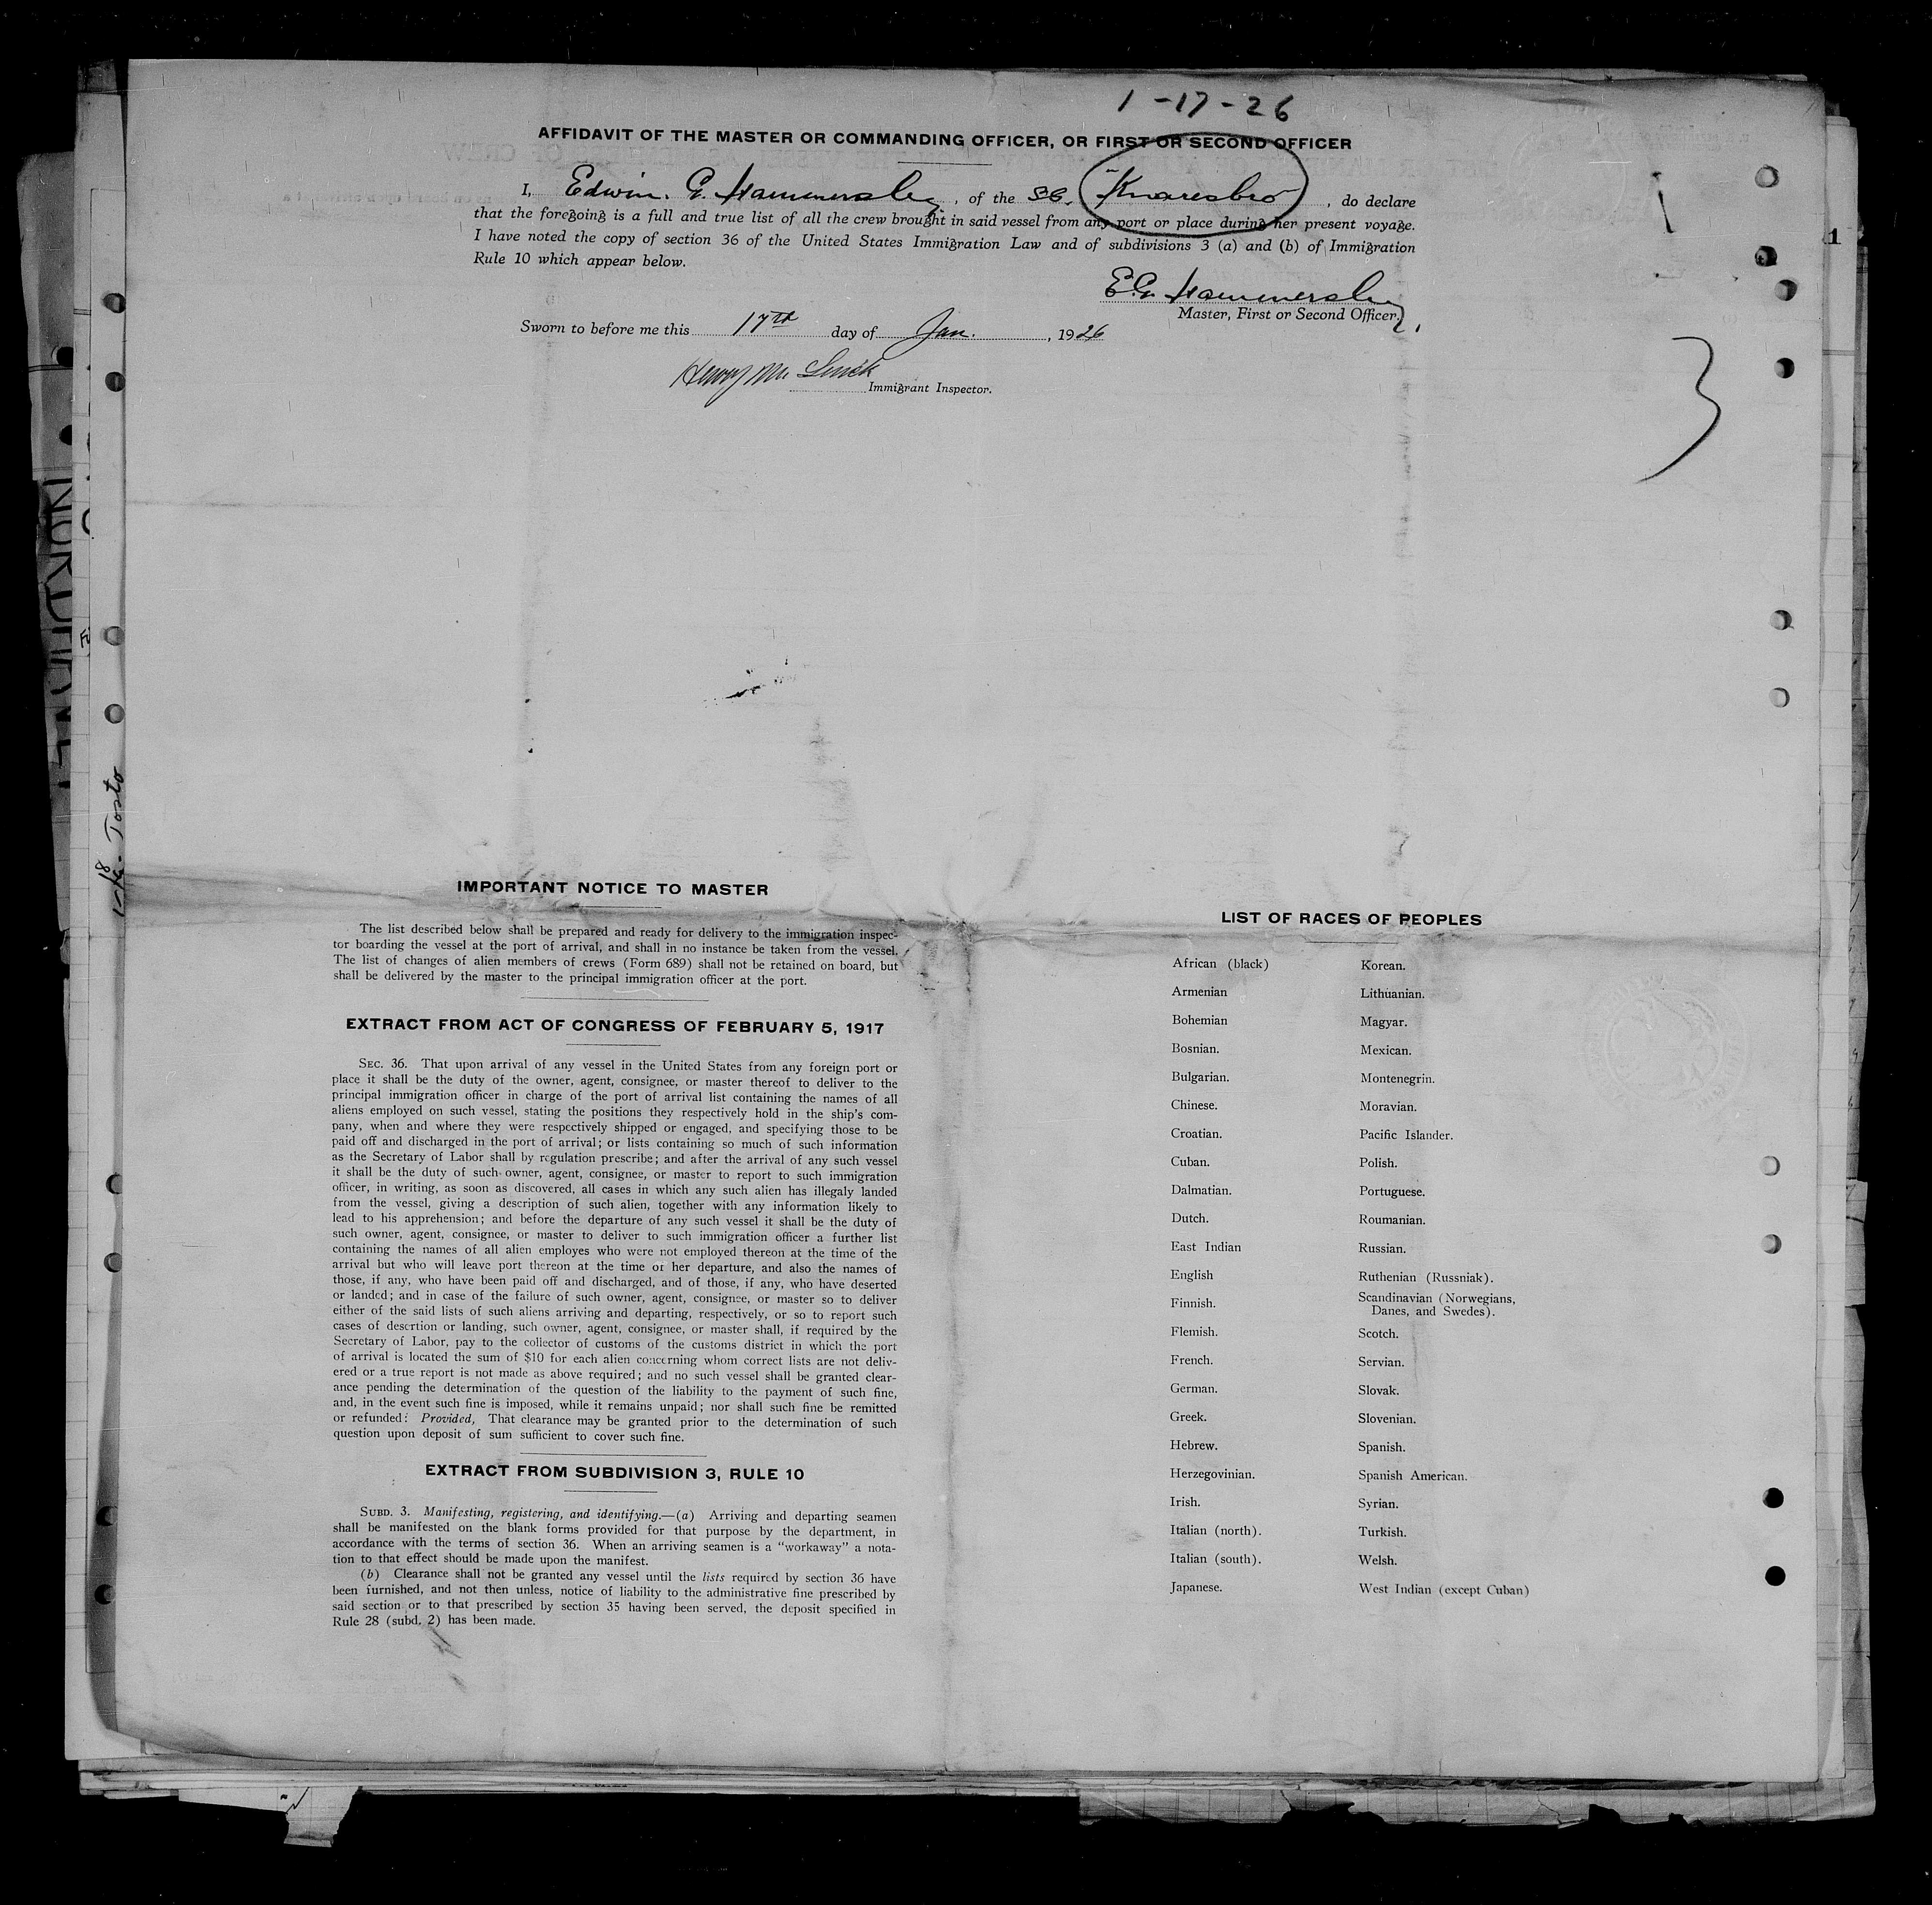 1-17-26
AFFIDAVIT OF THE MASTER OR COMMANDING OFFICER, OR FIRST OR SECOND OFFICER
I, Edwin. G. Hammersley, of the SS. "Knaresbro", do declare
that the foregoing is a full and true list of all the crew brought in said vessel from any port or place during her present voyage.
I have noted the copy of section 36 of the United States Immigration Law and of subdivisions 3 (a) and (b) of Immigration
Rule 10 which appear below.
E.G. Hammersley
Master, First or Second Officer.
Sworn to before me this 17th day of Jan., 1926
Immigrant Inspector.
3
1
IMPORTANT NOTICE TO MASTER
The list described below shall be prepared and ready for delivery to the immigration inspec-
tor boarding the vessel at the port of arrival, and shall in no instance be taken from the vessel.
The list of changes of alien members of crews (Form 689) shall not be retained on board, but
shall be delivered by the master to the principal immigration officer at the port.
EXTRACT FROM ACT OF CONGRESS OF FEBRUARY 5, 1917
SEC. 36. That upon arrival of any vessel in the United States from any foreign port or
place it shall be the duty of the owner, agent, consignee, or master thereof to deliver to the
principal immigration officer in charge of the port of arrival list containing the names of all
aliens employed on such vessel, stating the positions they respectively hold in the ship's com-
pany, when and where they were respectively shipped or engaged, and specifying those to be
paid off and discharged in the port of arrival; or lists containing so much of such information
as the Secretary of Labor shall by regulation prescribe; and after the arrival of any such vessel
it shall be the duty of such owner, agent, consignee, or master to report to such immigration
officer, in writing, as soon as discovered, all cases in which any such alien has illegaly landed
from the vessel, giving a description of such alien, together with any information likely to
lead to his apprehension; and before the departure of any such vessel it shall be the duty of
such owner, agent, consignee, or master to deliver to such immigration officer a further list
containing the names of all alien employes who were not employed thereon at the time of the
arrival but who will leave port thereon at the time of her departure, and also the names of
those, if any, who have been paid off and discharged, and of those, if any, who have deserted
or landed; and in case of the failure of such owner, agent, consignee, or master so to deliver
either of the said lists of such aliens arriving and departing, respectively, or so to report such
cases of desertion or landing, such owner, agent, consignee, or master shall, if required by the
Secretary of Labor, pay to the collector of customs of the customs district in which the port
of arrival is located the sum of $10 for each alien concerning whom correct lists are not deliv-
ered or a true report is not made as above required; and no such vessel shall be granted clear-
ance pending the determination of the question of the liability to the payment of such fine,
and, in the event such fine is imposed, while it remains unpaid; nor shall such fine be remitted
or refunded: Provided, That clearance may be granted prior to the determination of such
question upon deposit of sum sufficient to cover such fine.
EXTRACT FROM SUBDIVISION 3, RULE 10
SUBD. 3. Manifesting, registering, and identifying.—(a) Arriving and departing seamen
shall be manifested on the blank forms provided for that purpose by the department, in
accordance with the terms of section 36. When an arriving seamen is a "workaway" a nota-
tion to that effect should be made upon the manifest.
(b) Clearance shall not be granted any vessel until the lists required by section 36 have
been furnished, and not then unless, notice of liability to the administrative fine prescribed by
said section or to that prescribed by section 35 having been served, the deposit specified in
Rule 28 (subd. 2) has been made.
LIST OF RACES OF PEOPLES
African (black) Korean.
Armenian Lithuanian.
Bohemian Magyar.
Bosnian. Mexican.
Bulgarian. Montenegrin.
Chinese. Moravian.
Croatian. Pacific Islander.
Cuban. Polish.
Dalmatian. Portuguese.
Dutch. Roumanian.
East Indian Russian.
English Ruthenian (Russniak).
Finnish. Scandinavian (Norwegians,
Danes, and Swedes).
Flemish. Scotch.
French. Servian.
German. Slovak.
Greek. Slovenian.
Hebrew. Spanish.
Herzegovinian. Spanish American.
Irish. Syrian.
Italian (north). Turkish.
Italian (south). Welsh.
Japanese. West Indian (except Cuban)